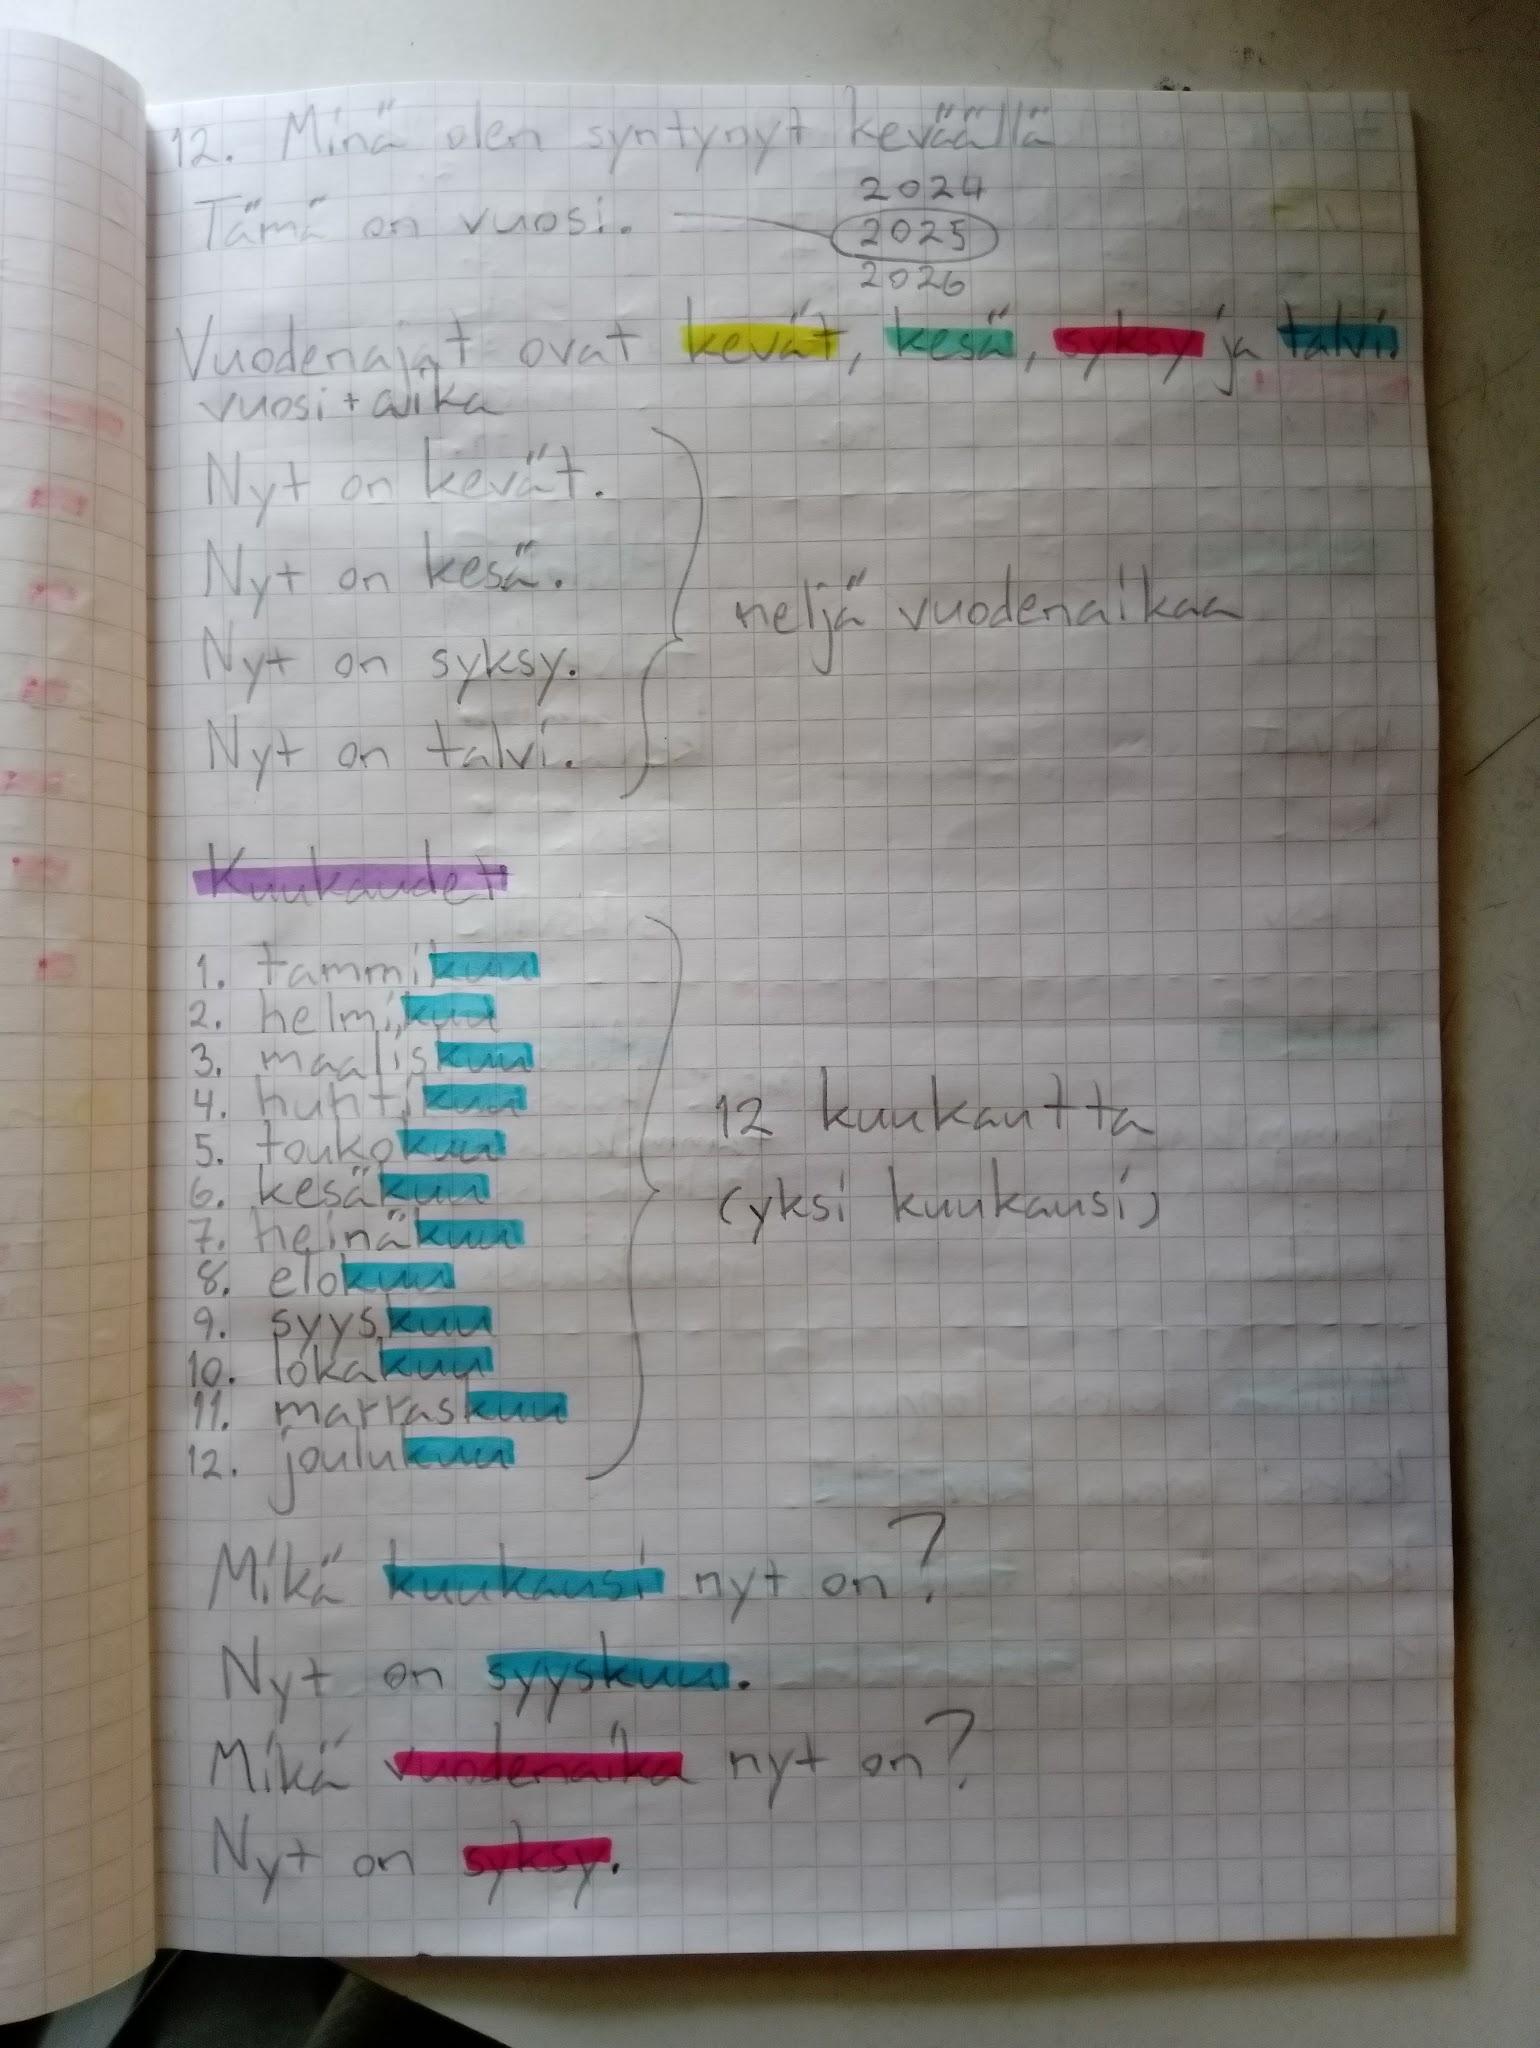 12. Minä olen syntynyt keväällä
2024
Tämä on vuosi. 2025
2026
Vuodenajat ovat kevät, kesä, syksy ja talvi.
vuosi + aika
Nyt on kevät.
Nyt on kesä.
neljä vuodenaikaa
Nyt on syksy.
Nyt on talvi.
Kuukaudet
1. tammikuu
2. helmikuu
3. maaliskuu
4. huhtikuu
5. toukokuu
6. kesäkuu
7. heinäkuu
8. elokuu
9. syyskuu
10. lokakuu
11. marraskuu
12. joulukuu
12 kuukautta
(yksi kuukausi)
Mikä kuukausi nyt on?
Nyt on syyskuu.
Mikä vuodenaika nyt on?
Nyt on syksy.